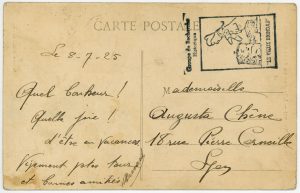 CARTE POSTALE
Le 8-7-25
Quel bonheur !
Quelle joie !
D'être en vacances
et bonnes amitiés
Mademoiselle
Augusta Chêne
18 rue Pierre Corneille
Lyon